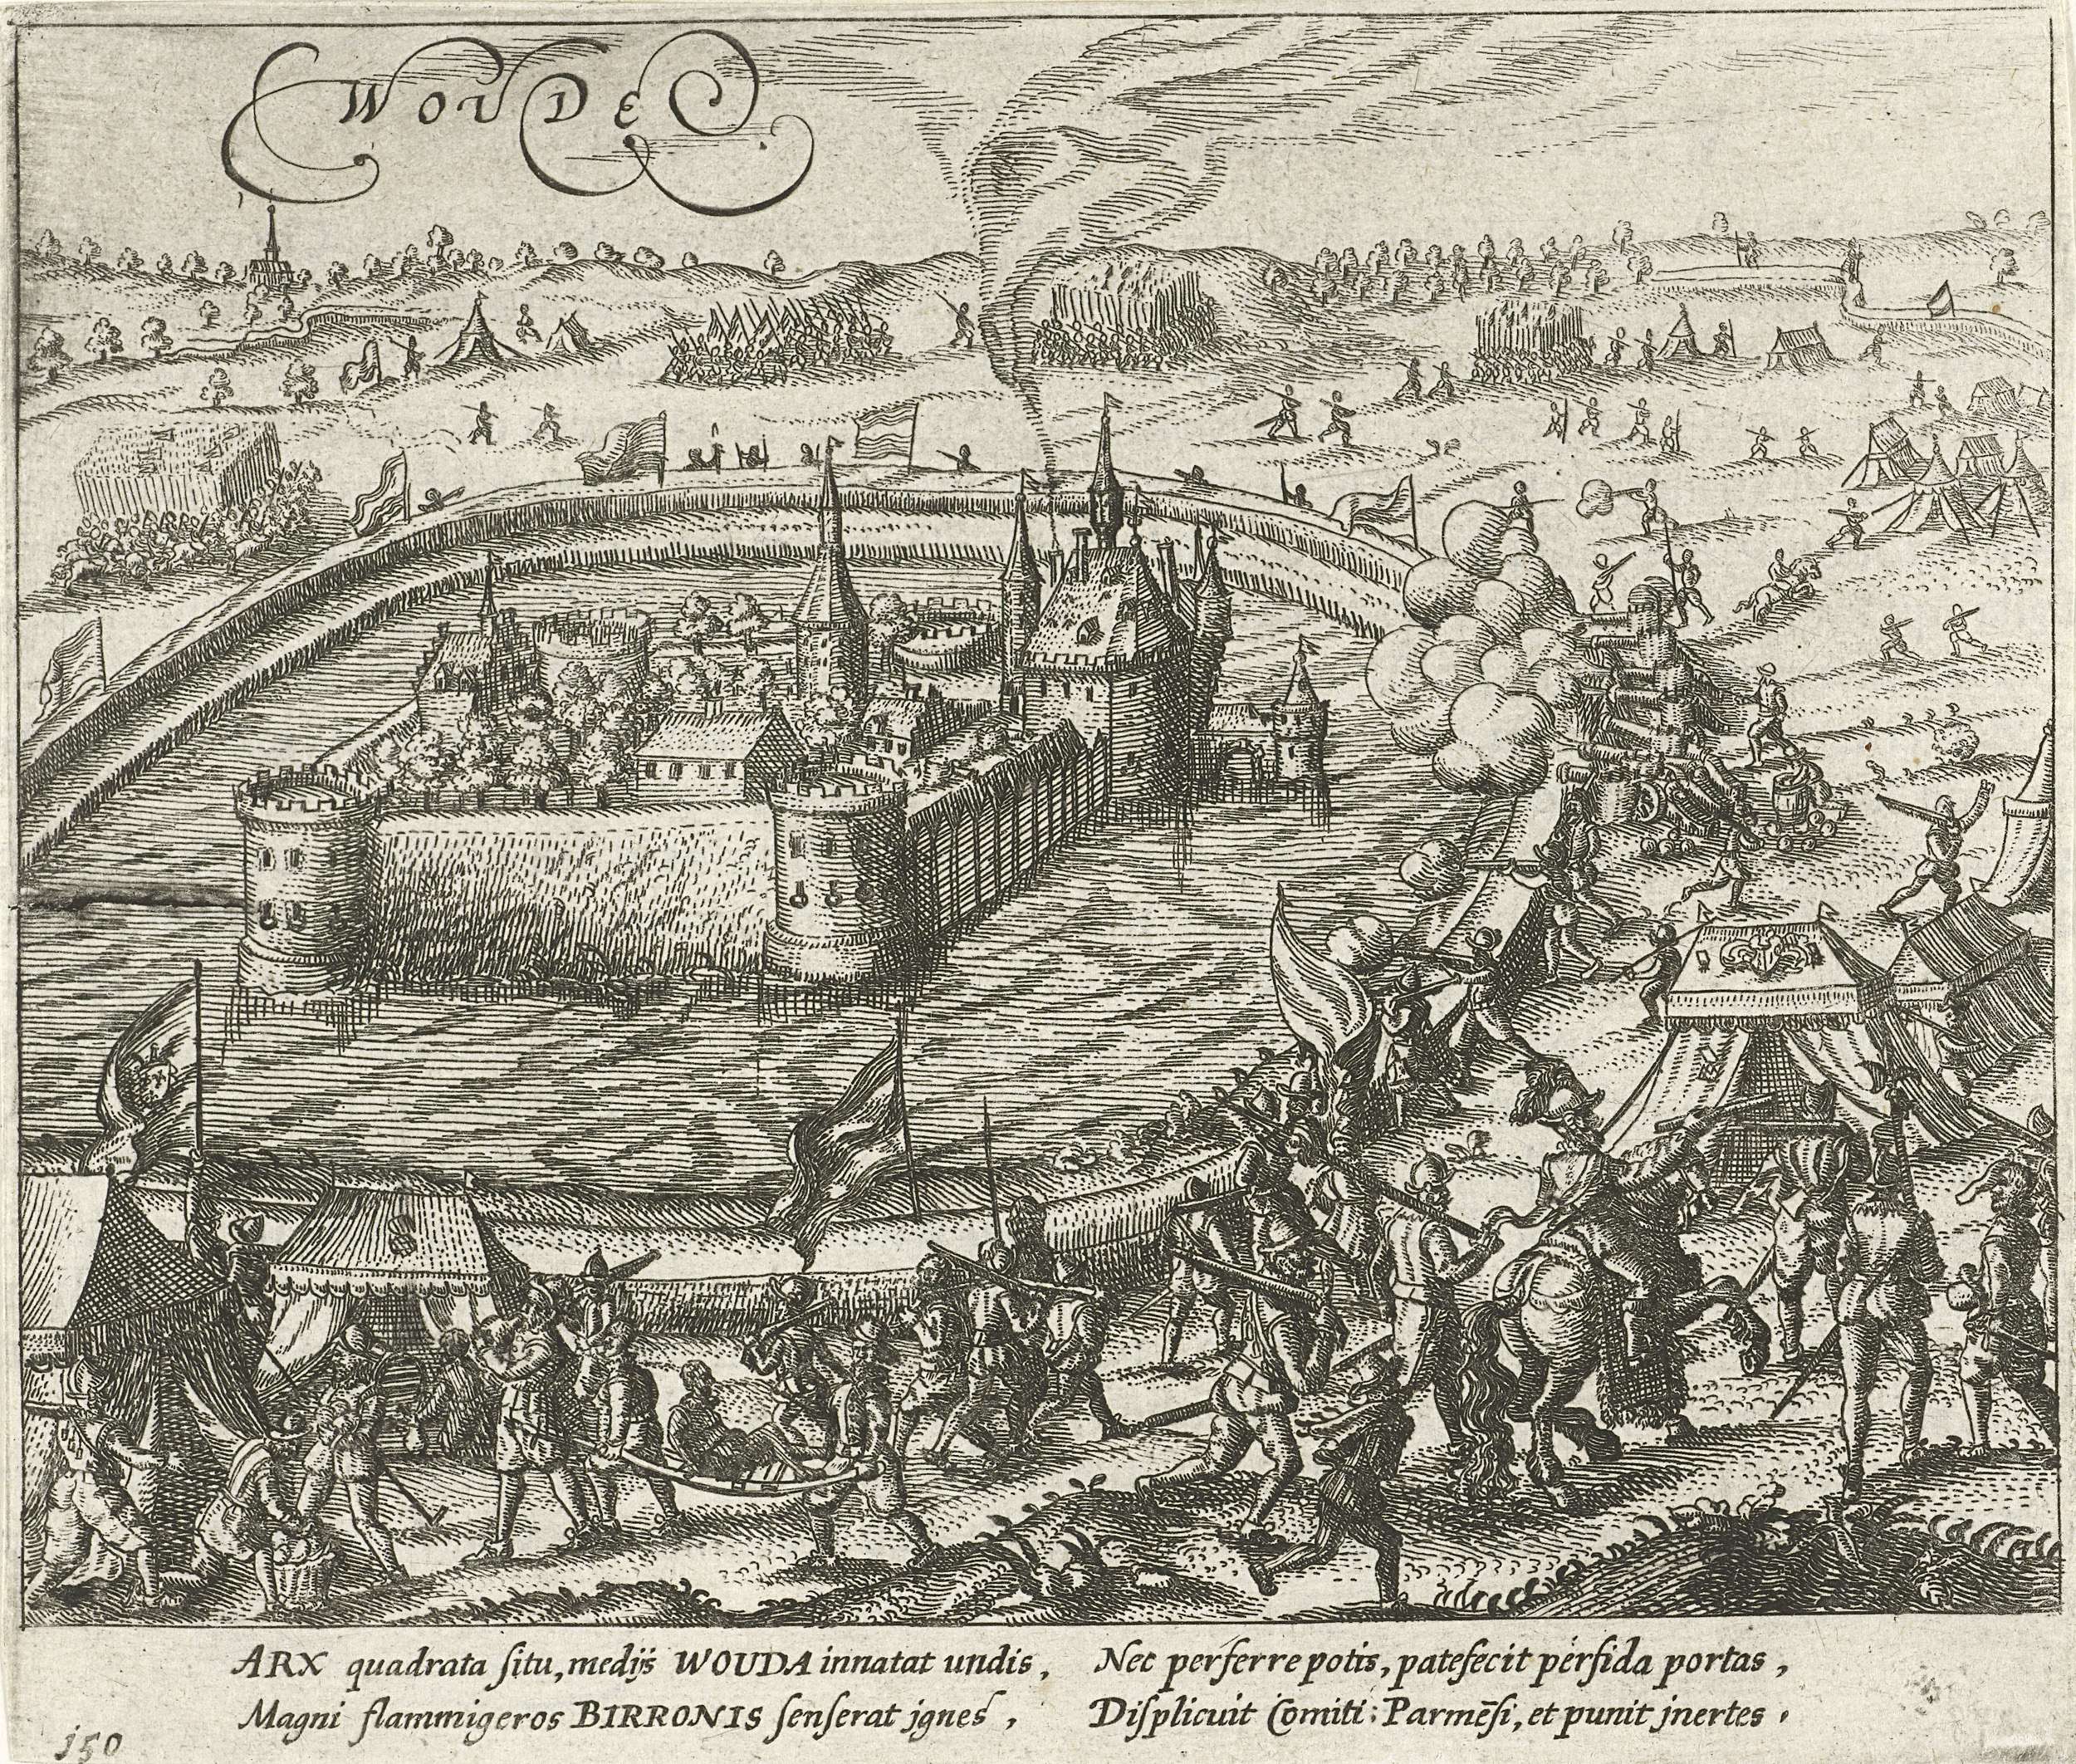 WOUDE
ARX quadrata ſitu, medijs WOUDA innatat undis,
Magni flammigeros BIRRONIS ſenſerat jgnes,
Nec perferre potis, patefecit perfida portas,
Diſplicuit Comiti: Parmēſi, et punit jnertes.
150